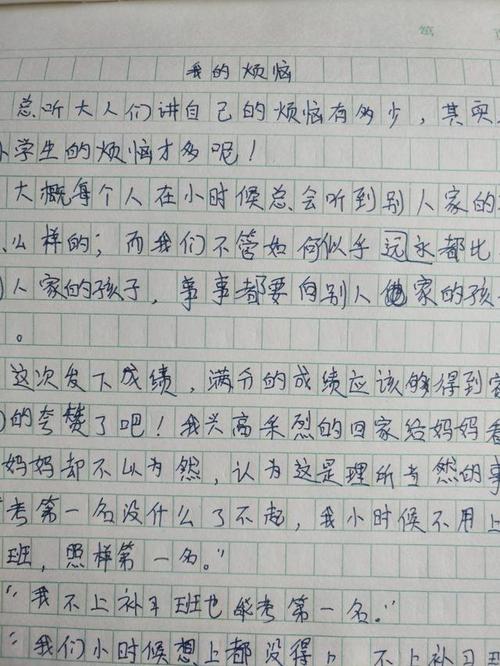 我的烦恼
总听大人们讲自己的烦恼有多少，其实
小学生的烦恼才多呢！
大概每个人在小时候总会听到别人家的
么样的；而我们不管如何似乎远永都比
人家的孩子，事事都要向别人家的孩
。
这次发下成绩，满分的成绩应该够得到
的夸赞了吧！我兴高采烈的回家给妈妈看
妈妈却不以为然，认为这是理所当然的事
“考第一名没什么了不起，我小时候不用上
班，照样第一名。”
“我不上补习班也能考第一名。”
“我们小时候想上都没得上，不上补习班